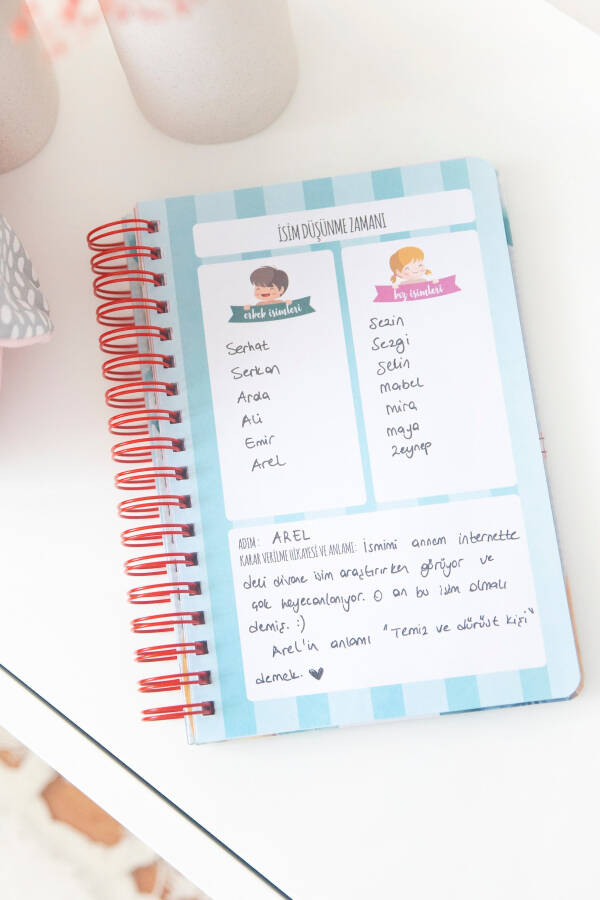 İSİM DÜŞÜNME ZAMANI
erkek isimleri
Serhat
Serkan
Arda
Ali
Emir
Arel
kız isimleri
Sezin
Sezgi
Selin
mabel
mira
maya
Zeynep
ADIM: AREL
KARAR VERİLME HİKAYESİ VE ANLAMI: İsmimi annem internette
deli divane isim araştırırken görüyor ve
çok heyecanlanıyor. O an bu isim olmalı
demiş. :)
Arel'in anlamı "Temiz ve dürüst kişi"
demek. ♥